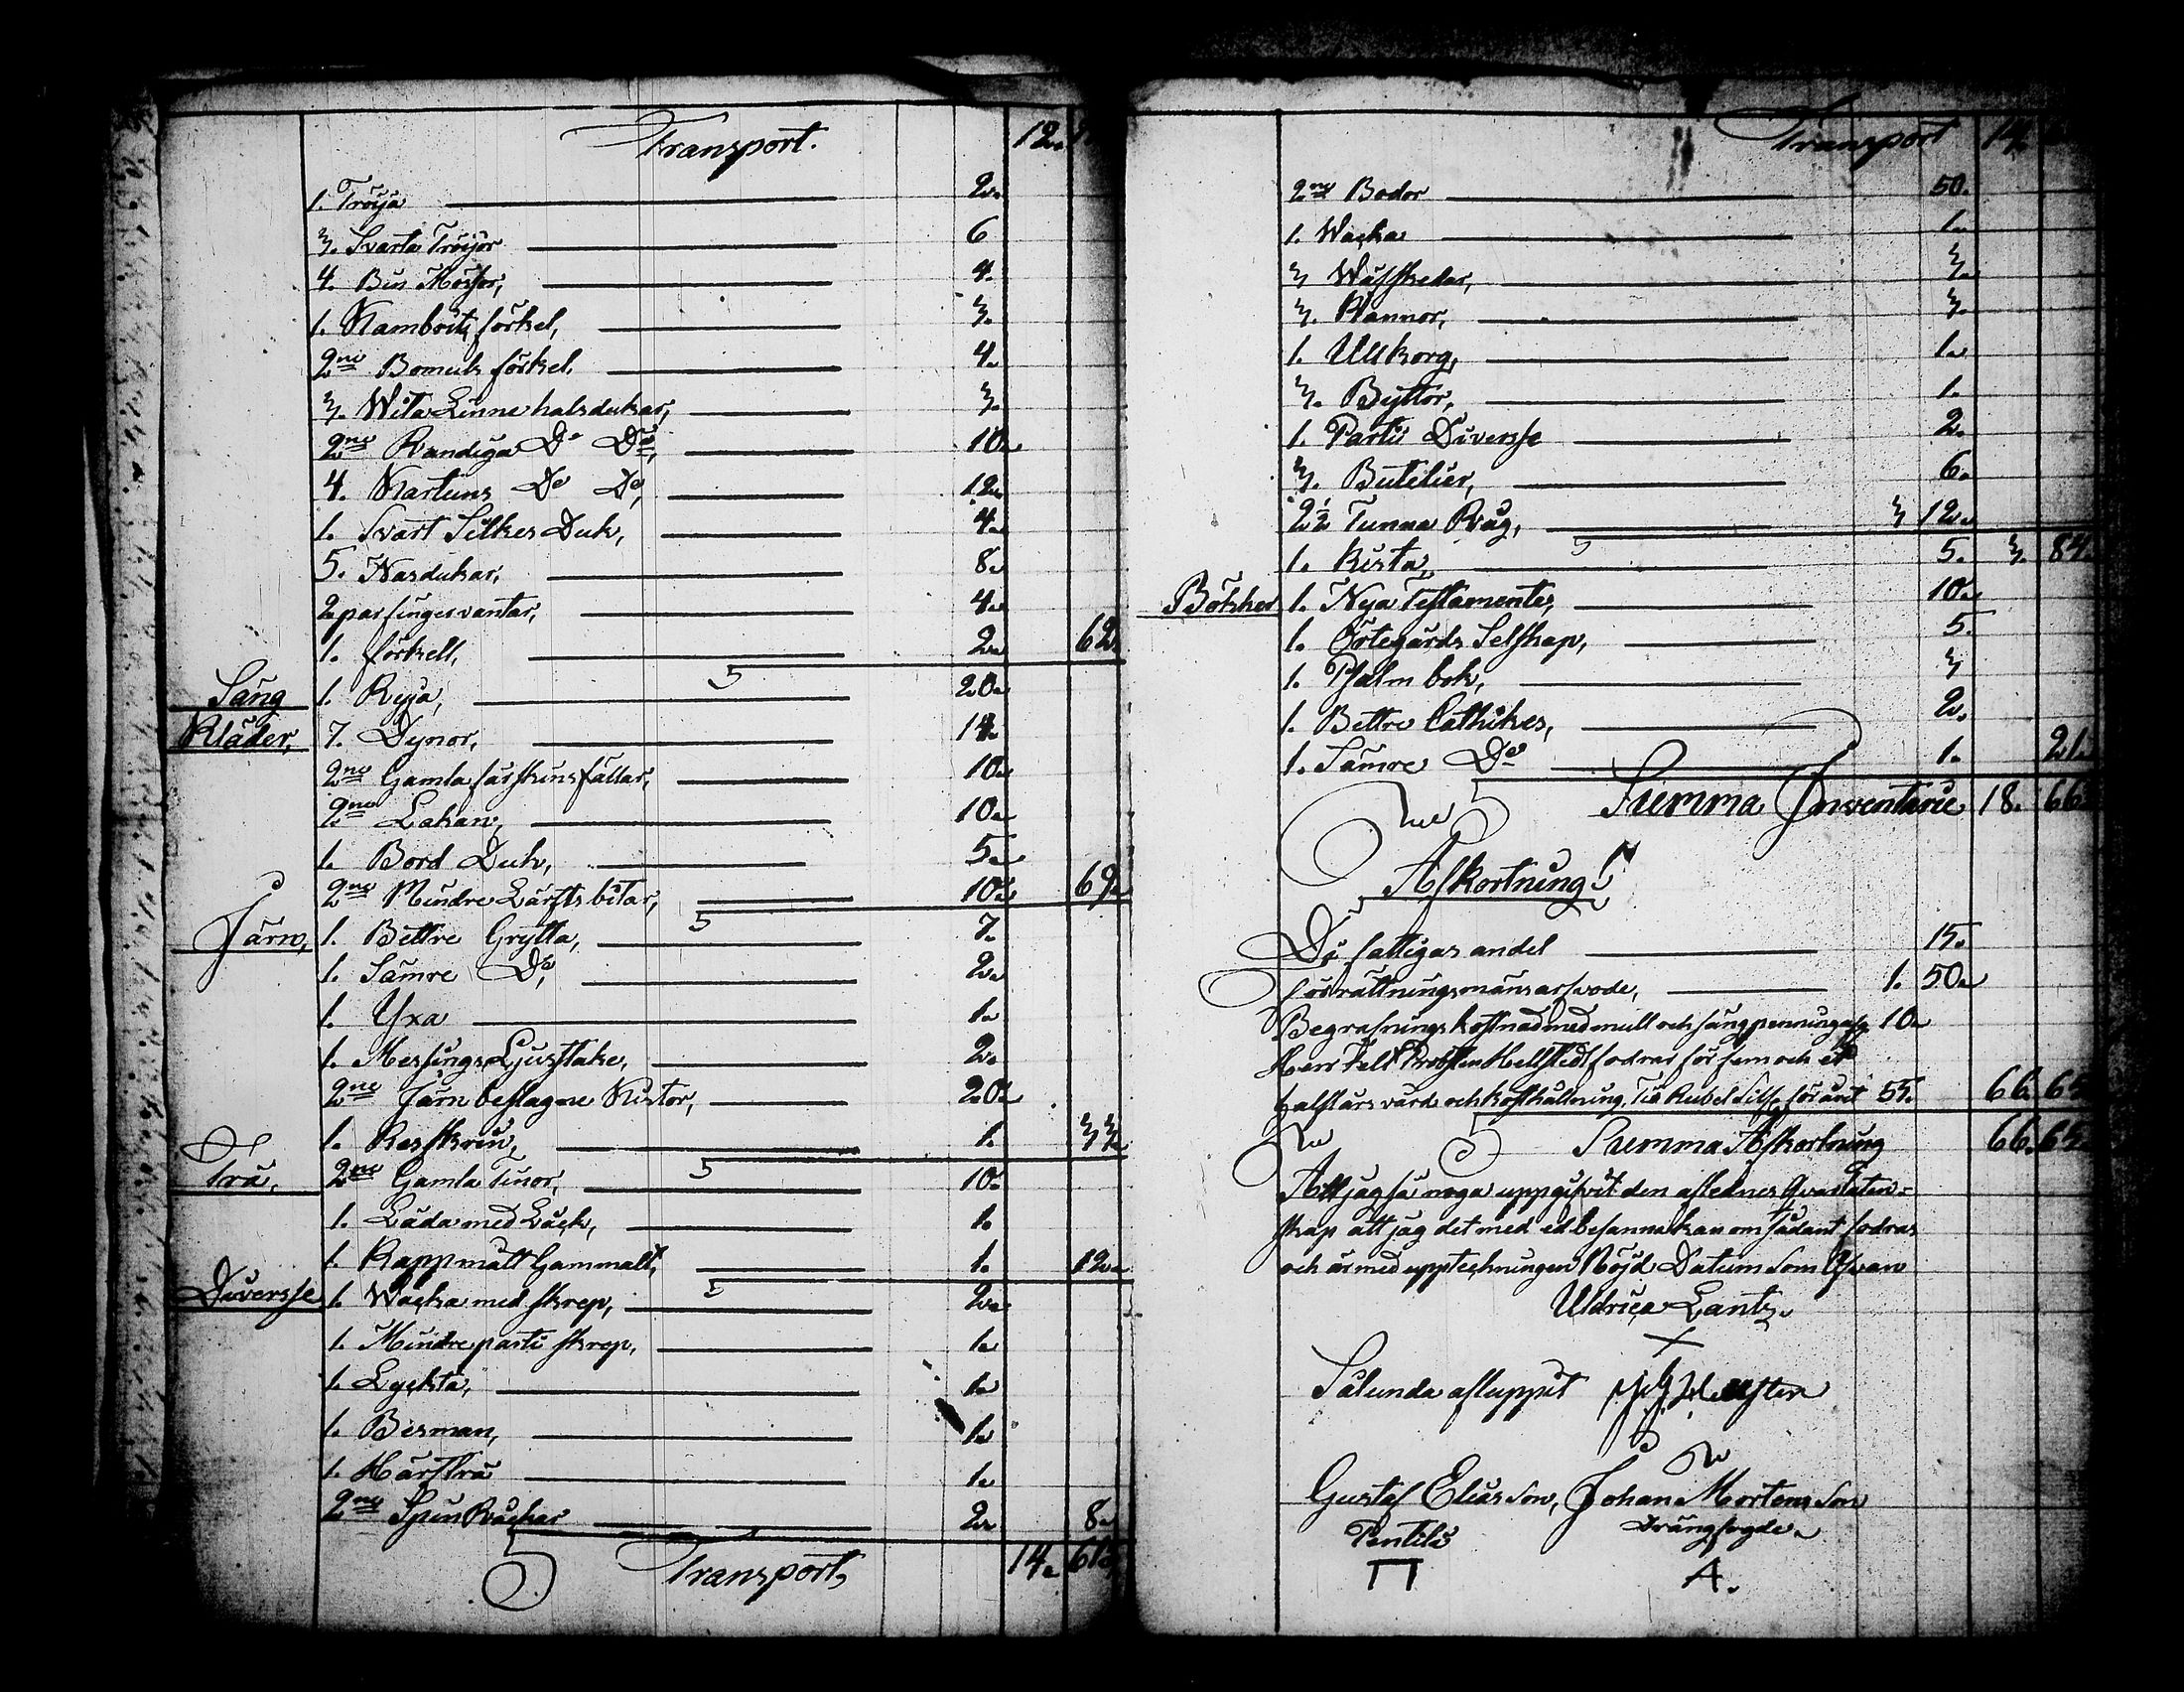 Transport. 12.
1. Tröija 2.
3. Svarta Tröijor 6
4. Bin Mössor, 4.
1. Kambrits förkel, 3.
2ne Bomuls förkel. 4.
3. Wita Linne halsdukar, 3.
2ne Randiga Do Do, 10.
4. Kartuns Do Do, 12.
1. Svart Silkes Duk, 4.
5. Nasdukar, 8.
2 par fingervantar, 4.
1. förkell, 2. 62.
Säng 1. Ryja, 20.
Kläder, 7. Dynor, 14.
2ne Gamla fårskinsfällar, 10.
2ne Lakan, 10.
1. Bord Duk, 5.
2ne Mindre Lärfts bitar, 10. 69.
Järn, 1. Bettre Grytta, 7.
1. Sämre Do, 2.
1. Yxa 1.
1. Messings Ljusstake, 2.
2ne Järn beslagne Kistor, 20.
1. Resskrin, 1. 33.
Trä, 2ne Gamla Tinor, 10.
1. Låda med Låck, 1.
1. Kappmått Gammalt, 1. 12.
Diversse 1. Wacka med skrep, 2.
1. Mindre parti skrep, 1.
1. Lyckta, 1.
1. Besman, 1.
1. Hårstrå 1.
2ne Spin Råckar 2. 8.
Transport, 14. 61.
Transport 14.
2ne Bodor 50.
1. Wacka 1.
3 Wäfskedar, 3.
3. Kannor, 3.
1. Ullkorg, 1.
3. Byttor, 1.
1. Parti Diversse 2.
3. Butelier, 6.
2½ Tunna Råg, 3 12.
1. Kista, 5. 3. 84.
Böcker 1. Nya Testamente, 10.
1. Örtegårds Selskap, 5.
1. Psalm bok, 3
1. Bettre Cathikes, 2.
1. Sämre Do 1. 21.
Summa Inventarie 18. 66.
Afkortning.
Di fattigas andel 15.
förrättningsmäns arfvode, 1. 50.
Begrafnings kostnad med mull och sängpenningar 10.
Herr Felt Probsten Hellstedt fodrar för fem och ett
halft års vård och kosthållning. Tio Rubel Silfr för året 55. 66. 65
Summa Afkortning 66. 65.
Att jag så noga uppgifvit den aflednes Qvarlåten-
skap att jag det med ed besanna kan om sådant fodras
och är med uppteckningen Nöjd Datum som Ofvan
Uldrica Lantz.
X
Sålunda afluppit
Gustaf Eliasson, Johan Mortensson
Pentilä Drängfogde.
A.